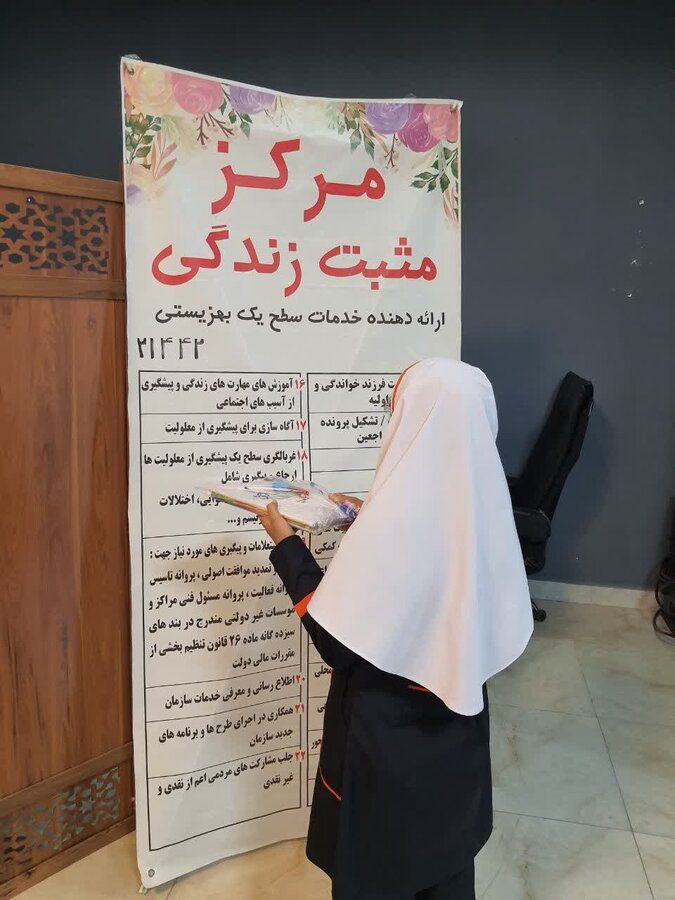 مرکز
مثبت زندگی
ارائه دهنده خدمات سطح یک بهزیستی
۲۱۴۴۲
فرزند خواندگی و
اولیه
/ تشکیل پرونده
اجعین
کمکی
محلی
۱۶ آموزش های مهارت های زندگی و پیشگیری
از آسیب های اجتماعی
۱۷ آگاه سازی برای پیشگیری از معلولیت
۱۸ غربالگری سطح یک پیشگیری از معلولیت ها
پیگیری شامل
اختلالات
و...
و پیگیری های مورد نیاز جهت :
تمدید موافقت اصولی ، پروانه تاسیس
فعالیت ، پروانه مسئول فنی مراکز و
موسسات غیر دولتی مندرج در بند های
سیزده گانه ماده ۲۶ قانون تنظیم بخشی از
مقررات مالی دولت
۲۰ اطلاع رسانی و معرفی خدمات سازمان
۲۱ همکاری در اجرای طرح ها و برنامه های
جدید سازمان
۲۲ جلب مشارکت های مردمی اعم از نقدی و
غیر نقدی